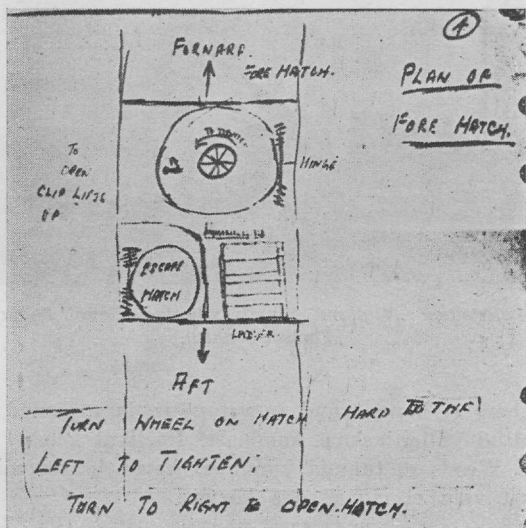 4
FORWARD.
FORE HATCH.
PLAN OF
FORE HATCH.
TO
OPEN
CLIP LIFTS
UP
HINGE
ESCAPE
HATCH
LADDER
AFT
TURN WHEEL ON HATCH HARD TO THE
LEFT TO TIGHTEN;
TURN TO RIGHT TO OPEN HATCH.